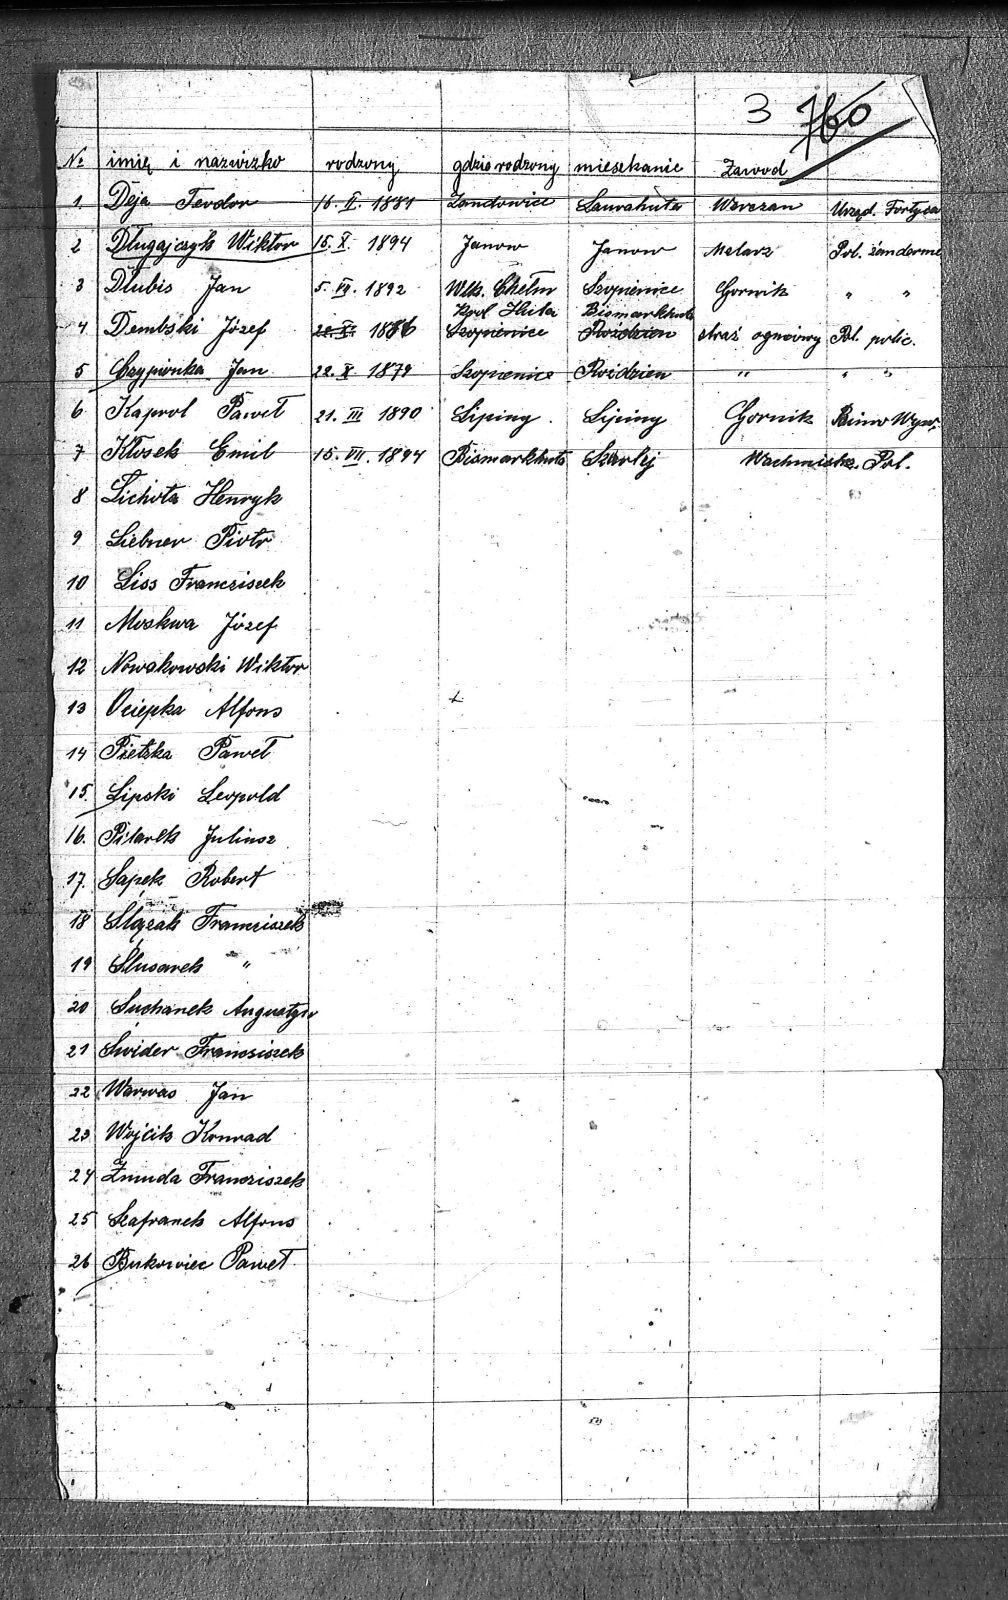 3 760
No imię i nazwizko rodzony gdzie rodzony mieszkanie Zawod
1. Deja Teodor 16. II. 1881 Zandowice Laurahuta Urzęd. Fortyca
2 Długajczyk Wiktor 15. X. 1894 Janow Janow Malarz Pol. żandarme
3 Dlubis Jan 5. VII. 1892 Wlk. Chełm Szopienice Gornik " "
Krol. Huta Bismarkhuta
4 Dembski Józef 22. XI. 1886 Szopienice Roździen straż ogniowy Pol. polic.
5 Czypionka Jan 22. X. 1879 Szopienice Roździen " " "
6 Kaprol Paweł 21. III 1890 Lipiny Lipiny Gornik Biuro Wyw.
7 Kłosek Emil 15. VII. 1894 Bismarkhuta Szarlej Wachmistrz. Pol.
8 Lichota Henryk
9 Liebner Piotr
10 Liss Franciszek
11 Moskwa Józef
12 Nowakowski Wiktor
13 Ociepka Alfons
14 Pietzka Paweł
15. Lipski Leopold
16. Pilarek Juliusz
17. Sapek Robert
18 Ślązak Franciszek
19 Ślusarek "
20 Suchanek Augustyn
21 Świder Franciszek
22 Warwas Jan
23 Wojcik Konrad
24 Żmuda Franciszek
25 Szafranek Alfons
26 Bukowiec Paweł